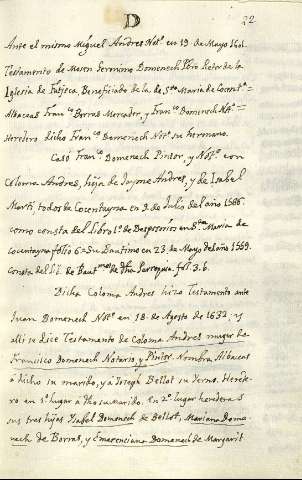 D
22
Ante el mismo Miguel Andres Not.º en 19 de Mayo 1601.
Testamento de Mosen Jermino Domenech Pbro Retor de la
Iglesia de Beneficiado de la de S.ta Maria de Cocent.ª=
Albaceas Fran.co Borras Mercader, y Fran.co Domenech Not.º=
Heredero dicho Fran.co Domenech Not.º su hermano.
Caso Fran.co Domenech Pintor, y Not.º con
Coloma Andres, hija de Jayme Andres, y de Isabel
Marti, todos de Cocentayna en 9 de Julio del año 1586.
como consta del Libro 1.º de Desposorios en S.ta Maria de
Cocentayna folio 6= Su Bautismo en 23 de Mayo del año 1569.
Consta del L. de Baut.mos de dha Parroquia fol. 36.
Dicha Coloma Andres hizo Testamento ante
Juan Domenech Not.º en 18 de Agosto de 1632 y
alli se dice Testamento de Coloma Andres muger de
Francisco Domenech Notario, y Pintor. Nombra Albaceas
á dicho su marido, y a Joseph Bellot su Yerno. Herede-
ro en 1.º lugar á dho su marido. En 2.º lugar heredera á
sus tres hijas Ysabel Domenech de Bellot, Mariana Dome-
nech de Borras, y Emerenciana Domenech de Margarit